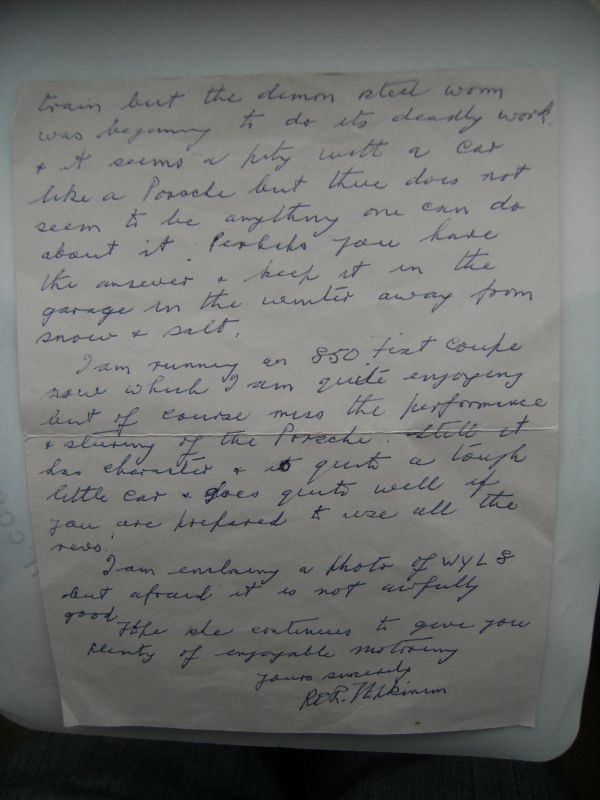 train but the demon steel worm
was beginning to do its deadly work.
& it seems a pity with a car
like a Porsche but there does not
seem to be anything one can do
about it. Perhaps you have
the answer & keep it in the
garage in the winter away from
snow & salt.
I am running an 850 Fiat Coupe
now which I am quite enjoying
but of course miss the performance
& steering of the Porsche. Still it
has character & is quite a tough
little car & goes quite well if
you are prepared to use all the
revs.
I am enclosing a photo of WYL 8
but afraid it is not awfully
good.
Hope she continues to give you
plenty of enjoyable motoring
yours sincerely